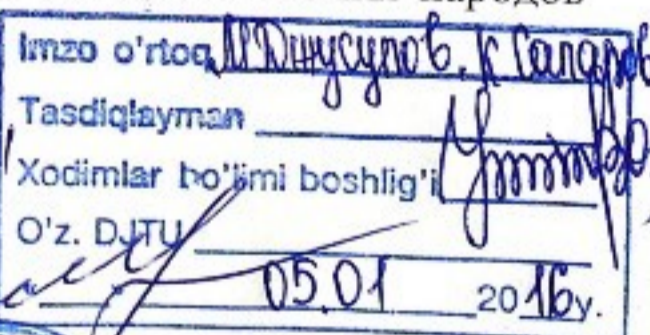 народов
Imzo o'rtoq М Джусупов, К Сапаров
Tasdiqlayman
Xodimlar bo'limi boshlig'i
O'z. DJTU
05.01 2016 y.